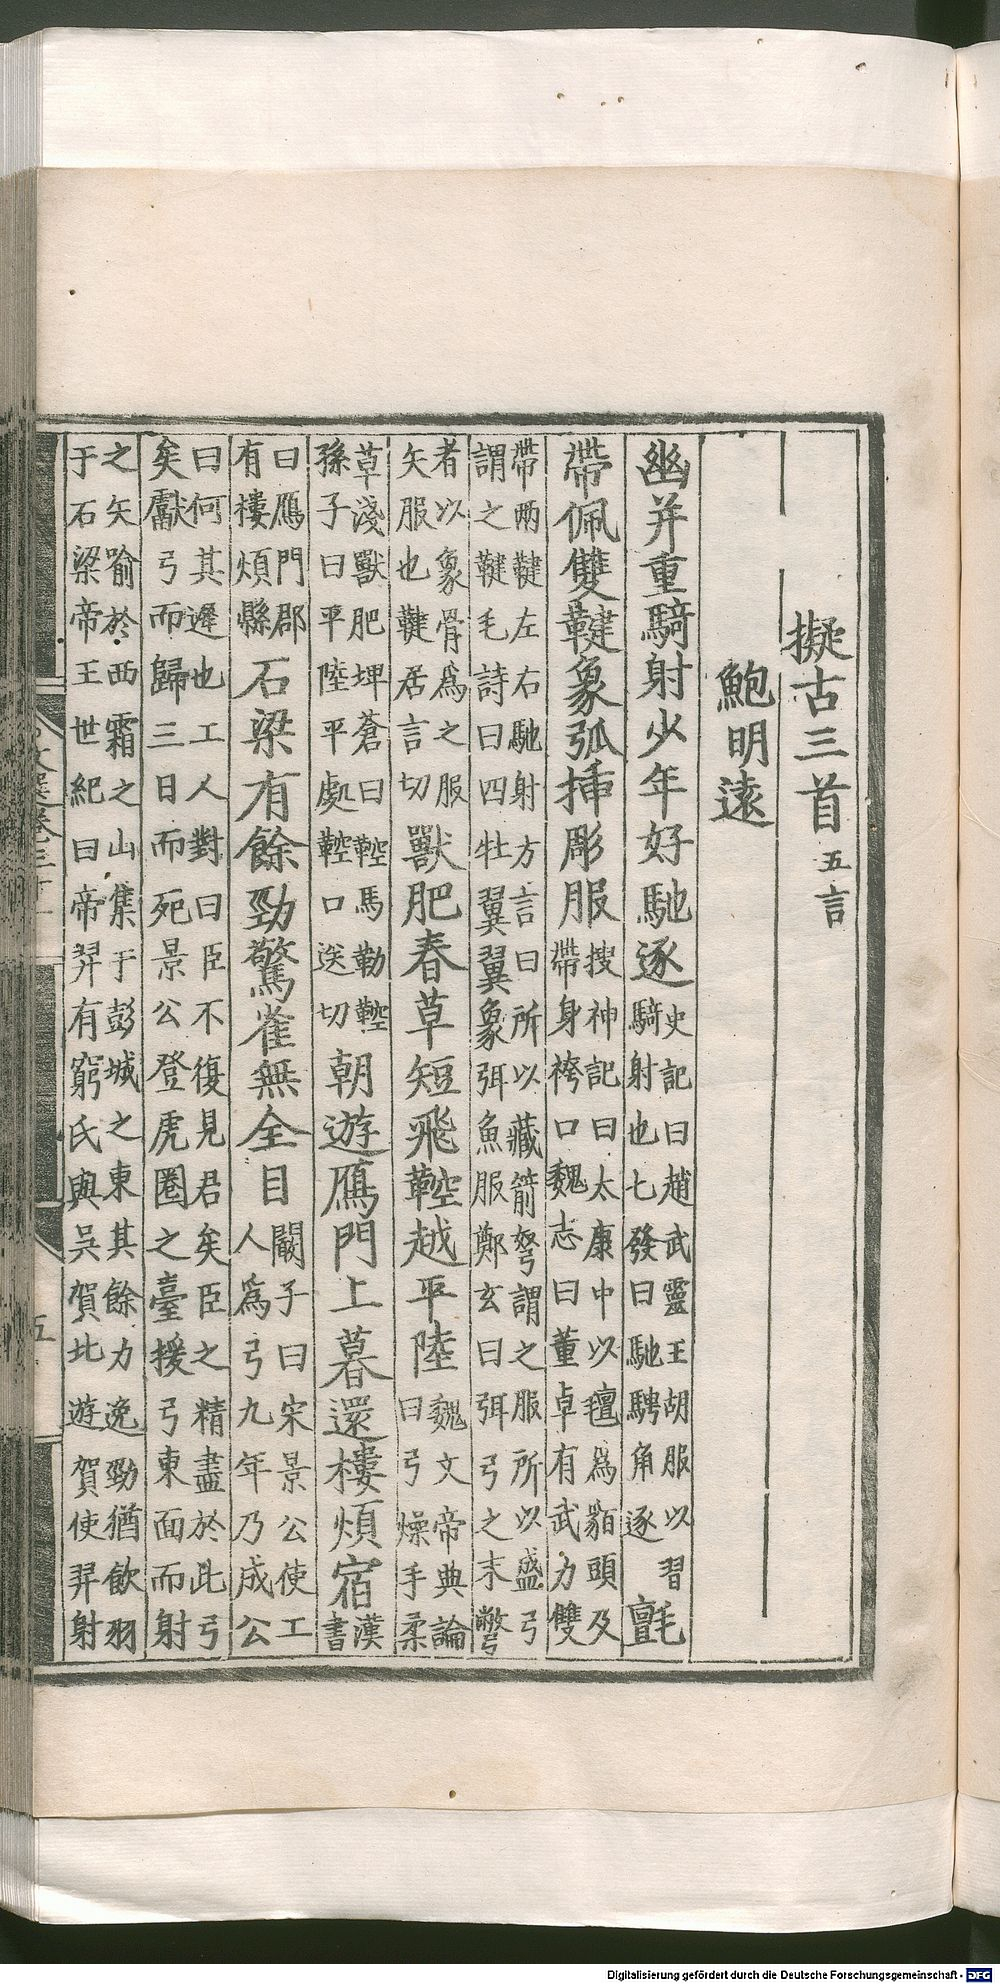 擬古三首 五言
鮑明遠
幽并重騎射少年好馳逐 史記曰趙武靈王胡服以習騎射也七發曰馳騁角逐 氊
帶佩雙鞬象弧插彫服 搜神記曰太康中以氊為貊頭及帶身袴口魏志曰董卓有武力雙
帶兩鞬左右馳射方言曰所以藏箭弩謂之服所以盛弓
謂之鞬毛詩曰四牡翼翼象弭魚服鄭玄曰弭弓之末彆
者以象骨為之服矢服也鞬居言切 獸肥春草短飛鞚越平陸 魏文帝典論曰弓燥手柔
草淺獸肥埤蒼曰鞚馬勒鞚孫子曰平陸平處鞚口送切 朝遊鴈門上暮還樓煩宿 漢書
曰鴈門郡有樓煩縣 石梁有餘勁驚雀無全目 闞子曰宋景公使工人為弓九年乃成公
曰何其遲也工人對曰臣不復見君矣臣之精盡於此弓
矣獻弓而歸三日而死景公登虎圈之臺援弓東面而射
之矢踰於西霜之山集于彭城之東其餘力逸勁猶飲羽
于石梁帝王世紀曰帝羿有窮氏與吳賀北遊賀使羿射
文選卷三十一 五
Digitalisierung gefördert durch die Deutsche Forschungsgemeinschaft - DFG